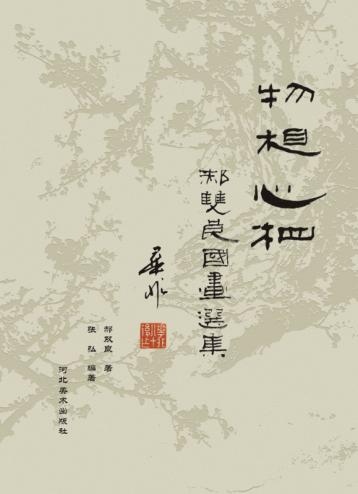 物相心栖
郝雙良國畫選集
華非
郝双良 著
张弘 编著
河北美术出版社